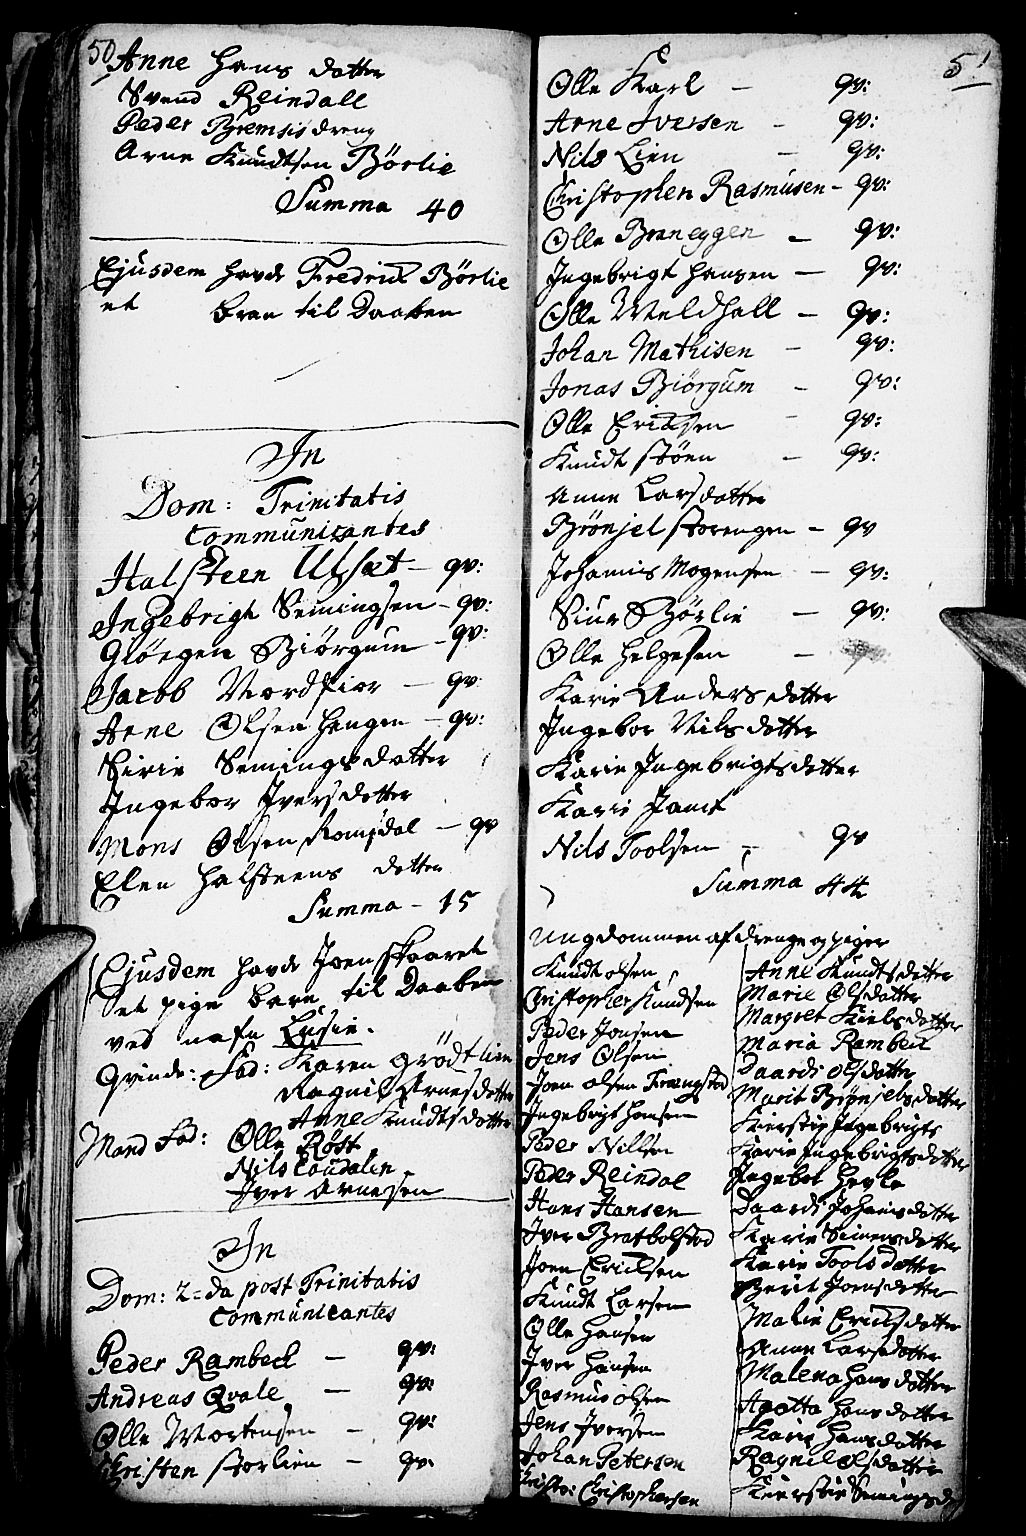 50
Anne Hans datter
Svend Reindall
Peder Bremsis dreng
Arne Knudtsen Börlie
Summa 40
Ejusdem hafde Fredrick Börlie
et barn til Daaben
In
Dom: Trinitatis
Communicantes
Halsteen Ulset - qv:
Ingebrigt Semingsen - qv:
Gløegen Biörgum - qv:
Jacob Nordfior - qv:
Arne Olsen Haugen - qv:
Sirie Semings datter
Ingebor Ivers datter
Mons Olsen Romsdal - qv
Elen Halsteens datter
Summa - 15
Ejusdem hafde Joen Skaaret
et pige barn til Daaben
ved nafn Lusie.
Qvinde: Fad: Karen Grødtlien
Ragnil Arnes datter
Anne Knudts datter
Mand Fad: Olle Röst
Nils Eoudalen
Iver Arnesen
In
Dom: 2=da post Trinitatis
Communicantes
Peder Rambeck - qv:
Andreas Qvale - qv:
Olle Mortensen - qv:
Christen Storlien - qv.
51
Olle Karl - qv:
Arne Iversen - qv:
Nils Lien - qv:
Christophen Rasmusen - qv:
Olle Braneggen - qv:
Ingebrigt Hansen - qv:
Olle Meldhall - qv:
Johan Mathisen - qv:
Jonas Biörgum - qv:
Olle Ericksen - qv:
Knudt Støen - qv:
Anne Lars datter
Brönjel Storengen - qv
Johannis Mogensen - qv:
Siur Börlie - qv:
Olle Helgesen -
Karie Anders datter
Ingebor Nils datter
Karie Ingebrigts datter
Karie
Nils Toolsen - qv
Summa 44
Ungdommen af drenge og piger
Knudt olsen
Christopher Knudsen
Peder Jonsen
Jens Olsen
Joen olsen
Ingebrigt Hansen
Peder Nillsen
Peder Reindal
Hans Hansen
Iver Bratbolstad
Joen Ericksen
Knudt Larsen
Olle Hansen
Iver Hansen
Rasmus olsen
Jens Iversen
Johan Petersen
Christo: Christophersen
Anne Knudts datter
Marie Ols datter
Margret Niels datter
Maria Rambeck
Daardi ols datter
Marit Brönjels datter
Kierstie Ingebrigts
Karie Ingebrigts datter
Ingebor Herle
Daardi Johanis datter
Karie Simens datter
Karie Tools datter
Berit Joens datter
Malie Ericks datter
Anne Lars datter
Malena Hans datter
Agatta Hans datter
Karie Hans datter
Ragnil ols datter
Kierstie Semings d